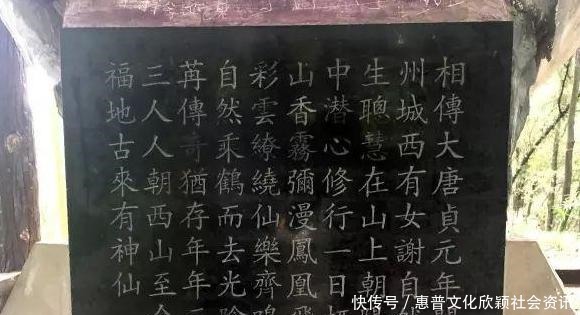 相傳大唐貞元年
州城西有女謝自
生聰慧在山上朝
中潜心修行一日
山香霧彌漫鳳凰
彩雲繚繞仙樂齊鳴
自然乘鶴而去光陰
苒傳奇猶存年年
三人人朝西山至今
福地古來有神仙
快传号/惠普文化欣颖社会资讯